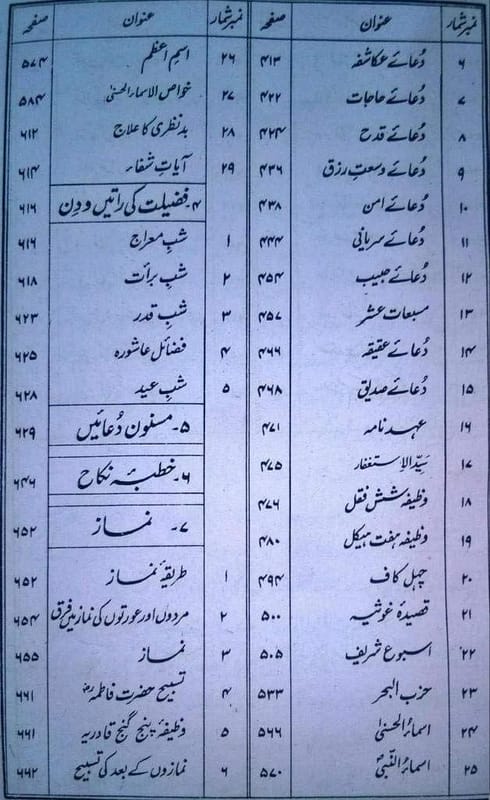 نمبر شمار عنوان صفحہ
۶ دُعائے عکاشفہ ۴۱۳
۷ دُعائے حاجات ۴۲۲
۸ دُعائے قدح ۴۲۴
۹ دُعائے وسعتِ رزق ۴۳۶
۱۰ دُعائے امن ۴۳۸
۱۱ دُعائے سریانی ۴۴۴
۱۲ دُعائے حبیب ۴۵۴
۱۳ مسبعات عشر ۴۵۷
۱۴ دُعائے عقیقہ ۴۶۶
۱۵ دُعائے صدیق ۴۶۸
۱۶ عہد نامہ ۴۷۱
۱۷ سیّد الاِستغفار ۴۷۵
۱۸ وظیفہ شش قفل ۴۷۶
۱۹ وظیفہ ہفت ہیکل ۴۸۰
۲۰ چہل کاف ۴۹۴
۲۱ قصیدۂ غوثیہ ۵۰۰
۲۲ اسبوع شریف ۵۰۵
۲۳ حزب البحر ۵۳۳
۲۴ اسمائے الحسنیٰ ۵۶۶
۲۵ اسمائے النّبیؐ ۵۷۰
نمبر شمار عنوان صفحہ
۲۶ اسمِ اعظم ۵۷۴
۲۷ خواص الاسماء الحسنیٰ ۵۸۴
۲۸ بدنظری کا علاج ۶۱۲
۲۹ آیاتِ شفاء ۶۱۴
۴۔ فضیلت کی راتیں و دِن ۶۱۶
۱ شبِ معراج ۶۱۶
۲ شبِ برأت ۶۱۸
۳ شبِ قدر ۶۲۳
۴ فضائل عاشورہ ۶۲۵
۵ شبِ عید ۶۲۸
۵۔ مسنون دُعائیں ۶۲۹
۶۔ خطبۂ نکاح ۶۴۶
۷۔ نماز ۶۵۲
۱ طریقۂ نماز ۶۵۲
۲ مردوں اور عورتوں کی نماز میں فرق ۶۵۴
۳ نماز ۶۵۵
۴ تسبیح حضرت فاطمہؓ ۶۶۱
۵ وظیفۂ پنج گنج قادریہ ۶۶۱
۶ نمازوں کے بعد کی تسبیح ۶۶۲